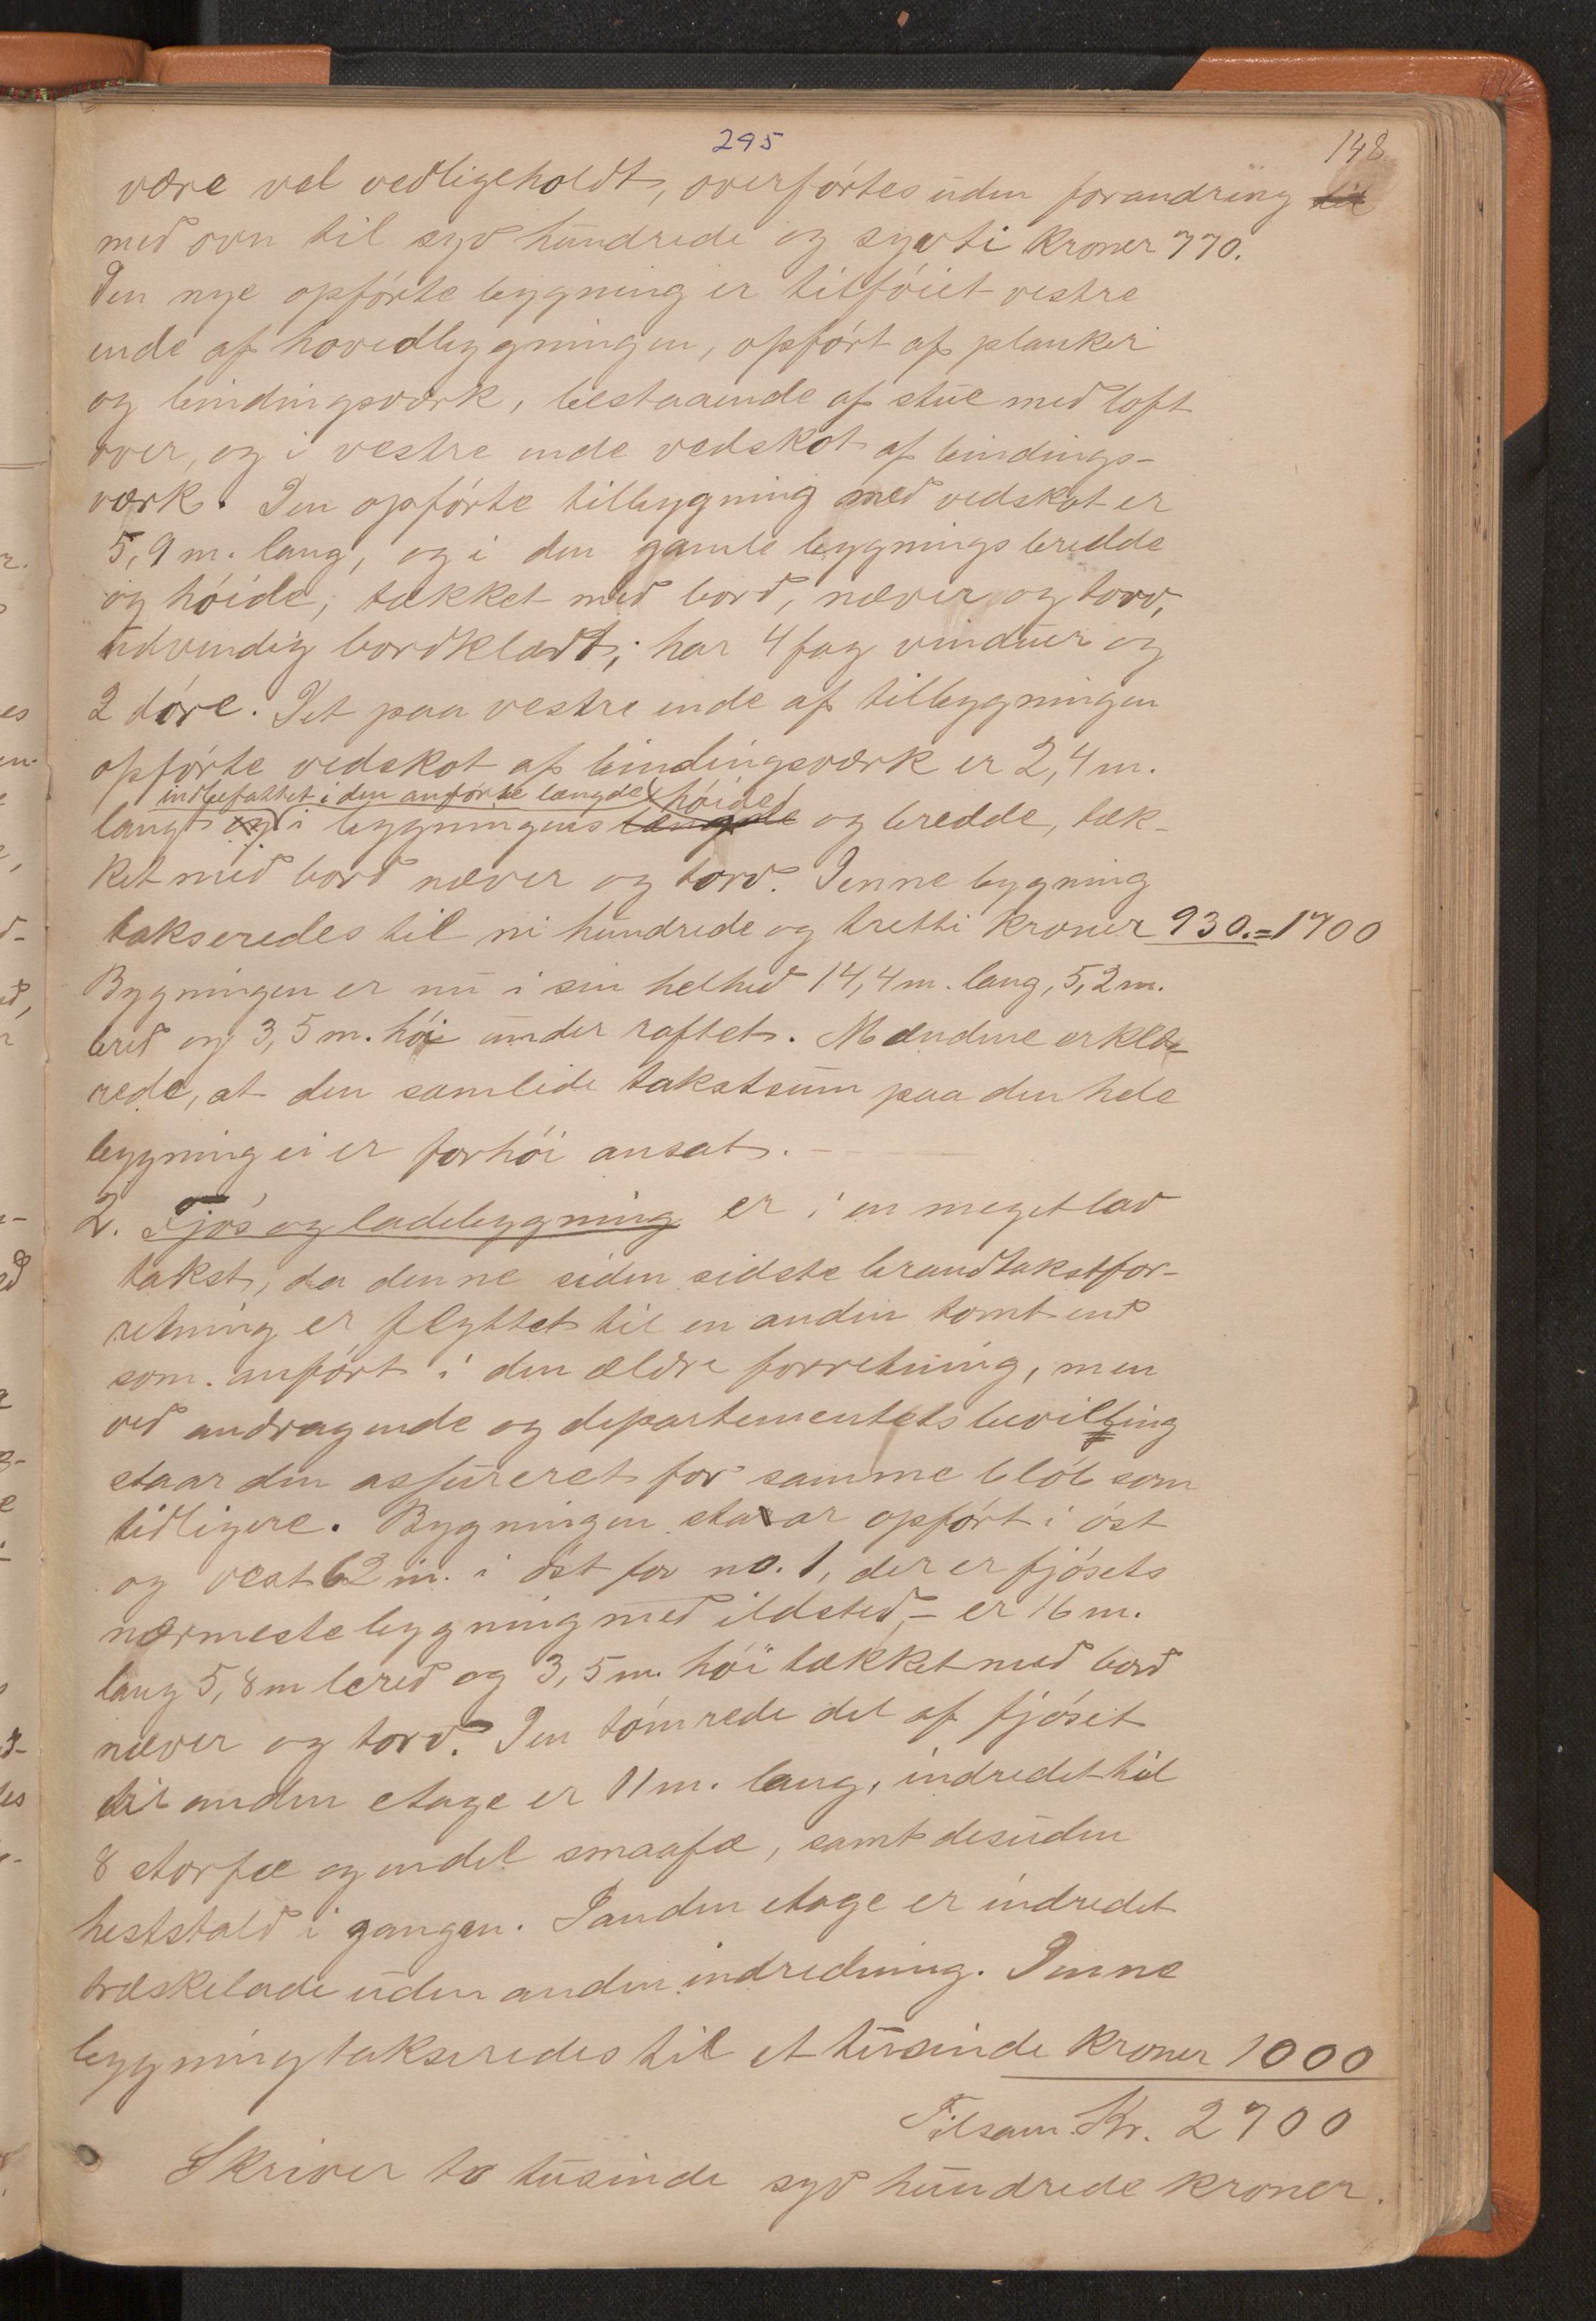 295
148
være vel vedligeholdt, overførtes uden forandring til
med ovn til syv hundrede og sytti Kroner 770.
Den nye opførte bygning er tilføiet vestre
ende af hovedbygningen, opført af planker
og bindingsværk, bestaaende af stue med loft
over, og i vestre ende vedskot af bindings-
værk. Den opførte tilbygning med vedskot er
5,9 m. lang, og i den gamle bygnings bredde
og høide, tækket med bord, næver og torv,
udvendig bordklædt; har 4 fag vinduer og
2 døre. Det paa vestre ende af tilbygningen
opførte vedskot af bindingsværk er 2,4 m.
indbefattet i den anførte længde høide
langt og i bygningens længde og bredde, tæk-
ket med bord næver og torv. Denne bygning
takseredes til ni hundrede og tretti Kroner 930.=1700
Bygningen er nu i sin helhed 14,4 m. lang, 5,2 m.
bred og 3,5 m. høi under raftet. Mændene erklæ-
rede, at den samlede takstsum paa den hele
bygning ei er forhøi ansat. -
2. Fjøs og ladebygning er i en meget lav
takst, da denne siden sidste brandtakstfor-
retning er flyttet til en anden tomt end
som anført i den ældre forretning, men
ved andragende og departementets bevilling
staar den assureret for samme beløb som
tidligere. Bygningen staar opført i øst
og vest 62 m. i øst for no. 1, der er fjøsets
nærmeste bygning med ildsted, - er 16 m.
lang 5,8 m bred og 3,5 m. høi tækket med bord
næver og torv. Den tømrede del af fjøset
til anden etage er 11 m. lang, indredet til
8 storfæ og endel smaafæ, samt desuden
heststald i gangen. I anden etage er indredet
træskelade uden anden indredning. Denne
bygning takseredes til et tusinde Kroner 1000
Tilsam. Kr. 2700
Skriver to tusinde syv hundrede Kroner.